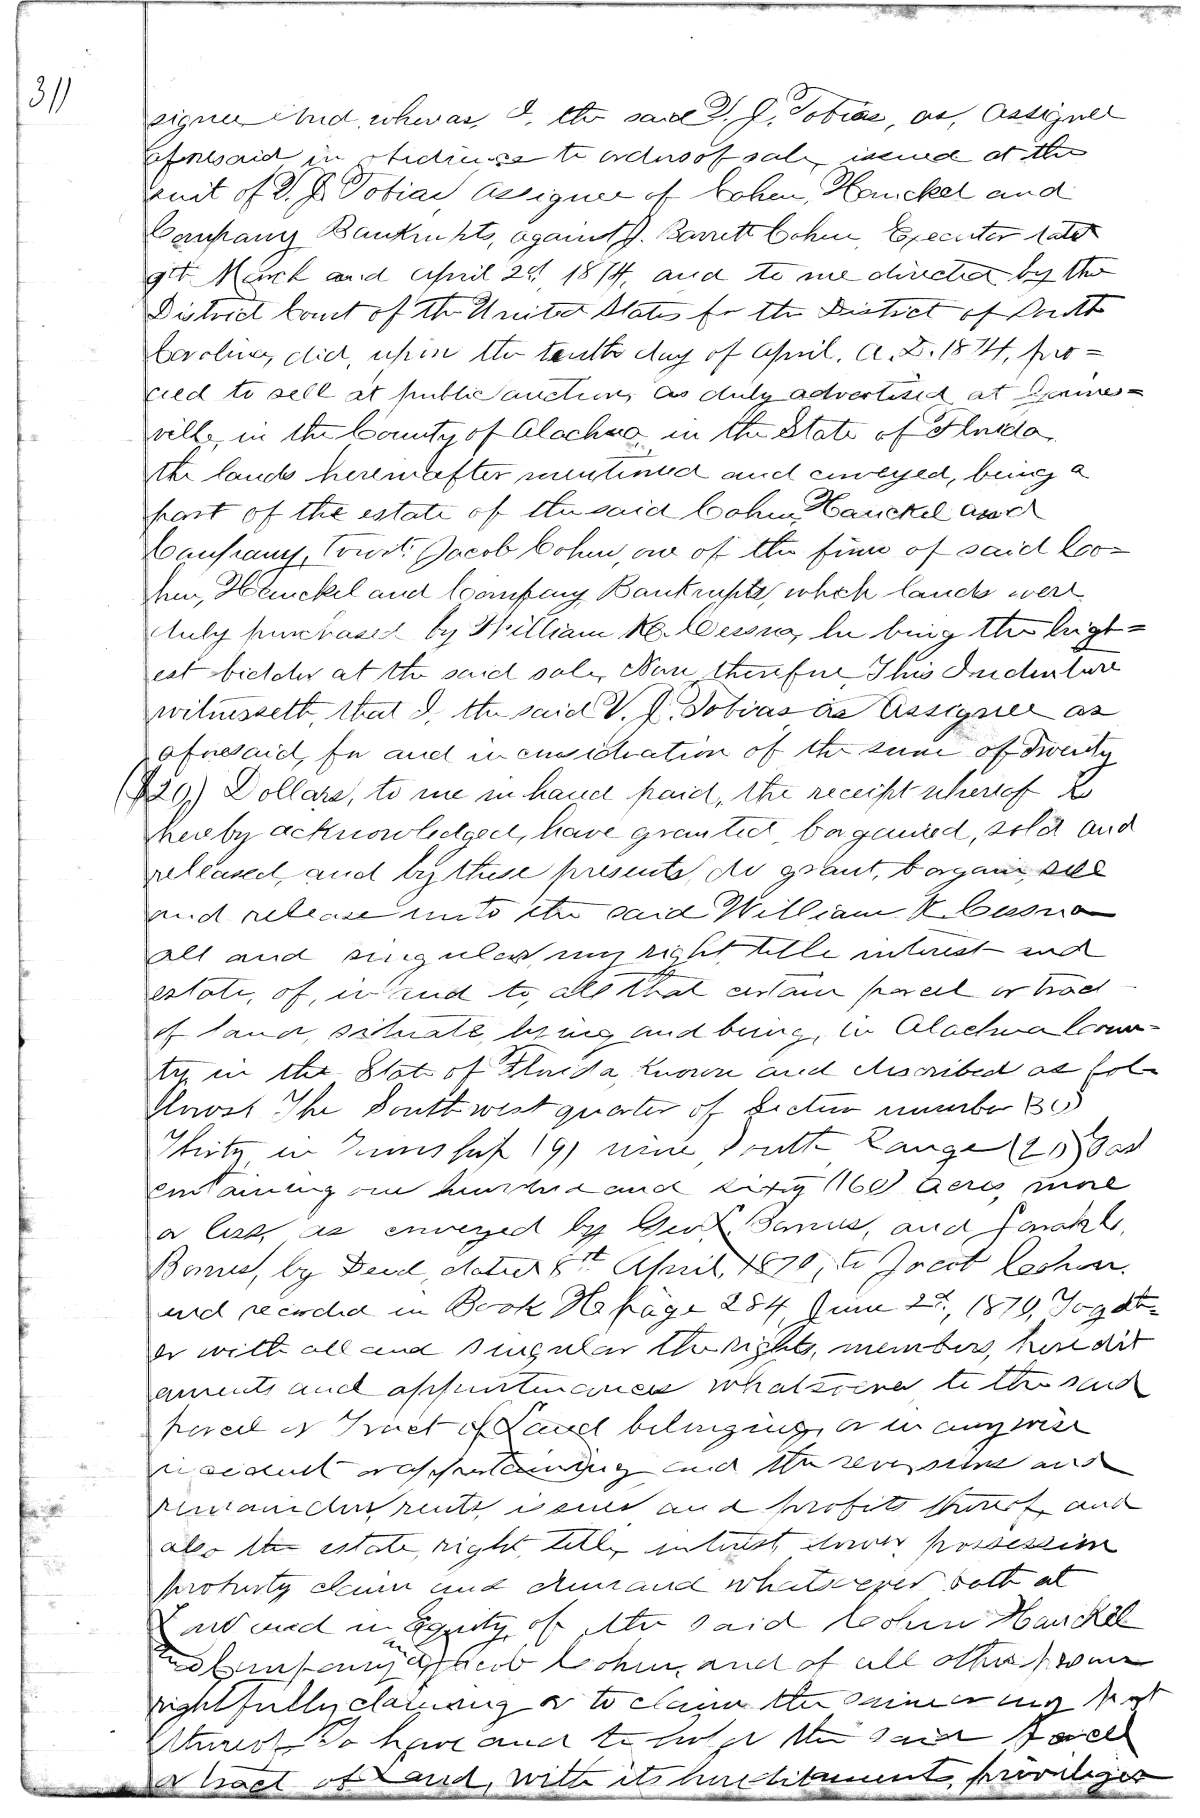 311
signee And, whereas, I, the said V. J. Tobias, as, Assignee
aforesaid in obedience to orders of sale, issued at the
suit of V. J. Tobias Assignee of Cohen, Hanckel and
Company Bankrupts, against J. Barrett Cohen Executor
9th March and April 2d, 1874, and to me directed by the
District Court of the United States for the District of South
Carolina, did, upon the tenth day of April, A. D. 1874, pro=
ceed to sell at public auction, as duly advertised at Gaines=
ville, in the County of Alachua in the State of Florida,
the lands hereinafter mentioned and conveyed, being a
part of the estate of the said Cohen, Hanckel and
Company, towit: Jacob Cohen, one of the firm of said Co=
hen, Hanckel and Company Bankrupts, which lands were
duly purchased by William K. Cessna, he being the high=
est bidder at the said sale, Now, therefore, This Indenture
witnesseth, that I, the said V. J. Tobias as Assignee as
aforesaid, for and in consideration of the sum of Twenty
($20) Dollars, to me in hand paid, the receipt whereof is
hereby acknowledged, have granted, bargained, sold and
released, and by these presents, do grant, bargain, sell
and release unto the said William K. Cessna
all and singular, my right, title interest and
estate, of, in and to, all that certain parcel or tract
of land, situate, lying and being, in Alachua Coun=
ty, in the State of Florida, known and described as fol=
lows: The Southwest quarter of Section number (30)
Thirty, in Township (9) nine, South, Range (20) East
containing one hundred and sixty (160) acres, more
or less, as conveyed by Geo. L. Barnes, and Sarah L.
Barnes, by Deed, dated 8th April, 1870, to Jacob Cohen.
and recorded in Book H page 284, June 2d, 1870, Togeth=
er with all and singular the rights, members, heredit
aments and appurtenances whatsoever, to the said
parcel or Tract of Land belonging, or in anywise
incident or appertaining and the reversions and
remainders, rents, issues and profits thereof, and
also the estate, right, title, interest, dower, possession
property claim and demand whatsoever both at
Law and in Equity, of the said Cohen Hanckel
and Company and of Jacob Cohen, and of all other persons
rightfully claiming or to claim the same or any part
thereof, To have and to hold the said parcel
or tract of Land, with its hereditaments, privileges